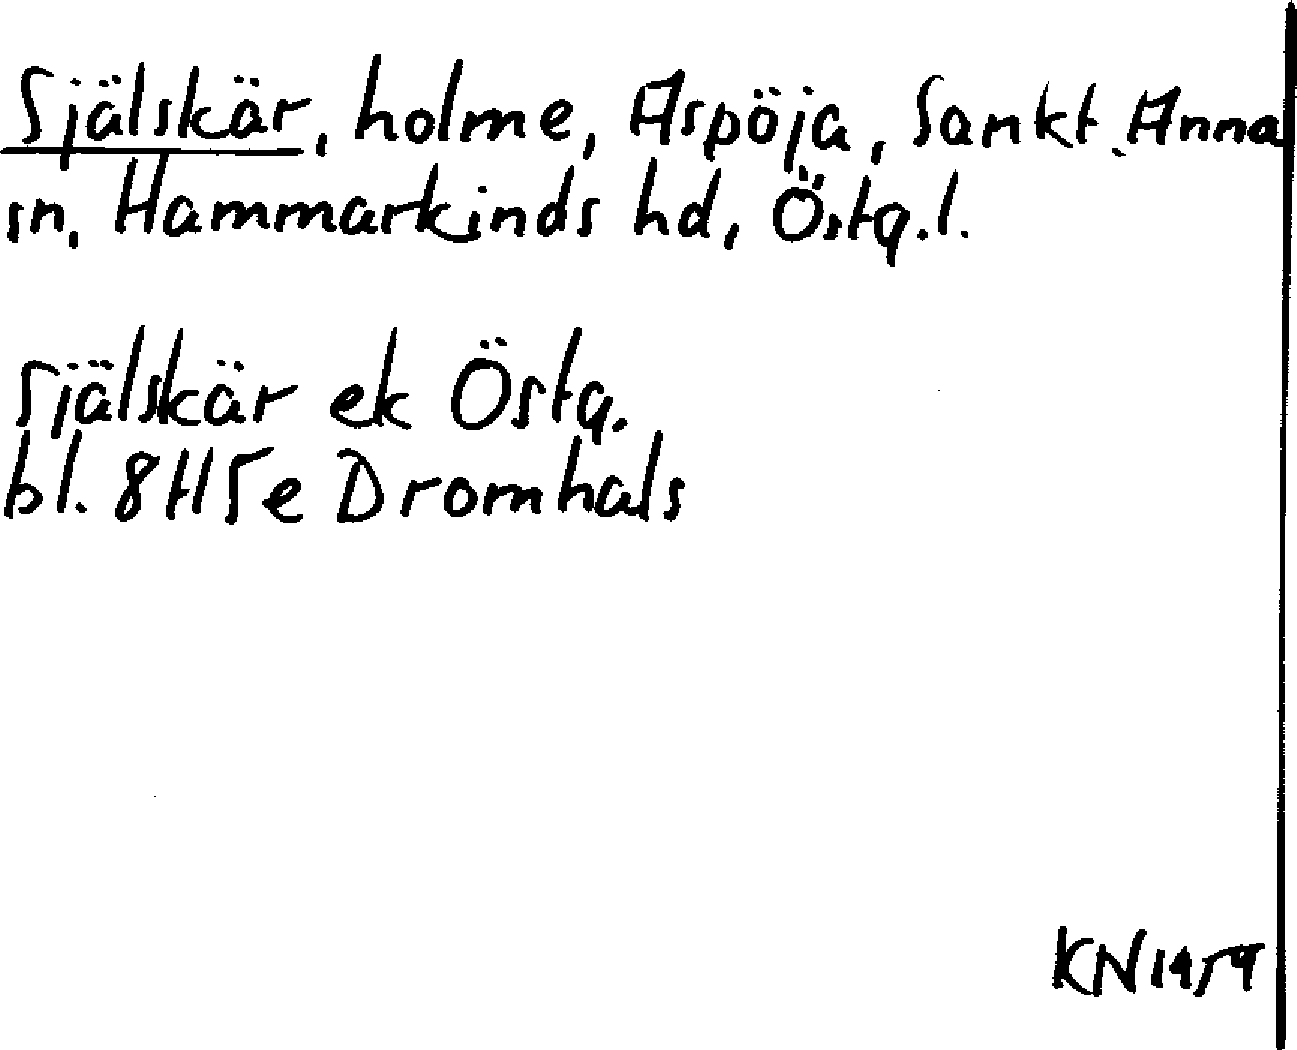 Själskär, holme, Aspöja, Sankt Anna
sn, Hammarkinds hd, Östg.l.
Själskär ek Östg.
bl. 8H5e Dromhals
KN 1959